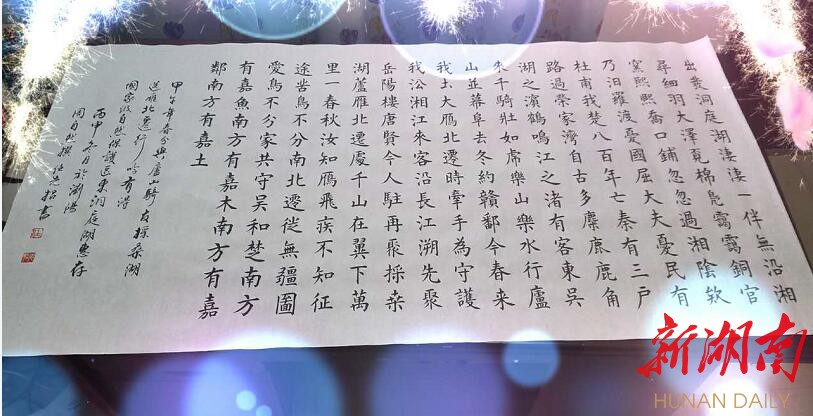 出發洞庭湖淒淒一伴無沿湘
尋細羽大澤覓棉凫靄靄銅官
窯熙熙喬口鋪忽忽過湘陰欸
乃汨羅渡憂國屈大夫憂民有
杜甫我楚八百年亡秦有三戶
路過榮家灣自古多麋鹿鹿角
湖之濱鶴鳴江之渚有客東吳
来千騎壯如虎樂山樂水行廬
山並幕阜去冬約贛鄱今春来
我出大雁北遷時牽手為守護
我沿湘江來客沿長江溯先聚
岳陽樓唐賢今人駐再聚採桑
湖蘆雁北遷處千山在翼下萬
里一春秋汝知鴈飛疾不知征
途苦鳥不分南北遷徙無疆圖
愛鳥不分家共守吳和楚南方
有嘉魚南方有嘉木南方有嘉
鄰南方有嘉士
甲午年春分與廬山騎友採桑湖
送雁北遷行吟有得
國家級自然保護區東洞庭湖惠存
丙申冬月於瀏陽
周自然撰 書
新湖南
HUNAN DAILY